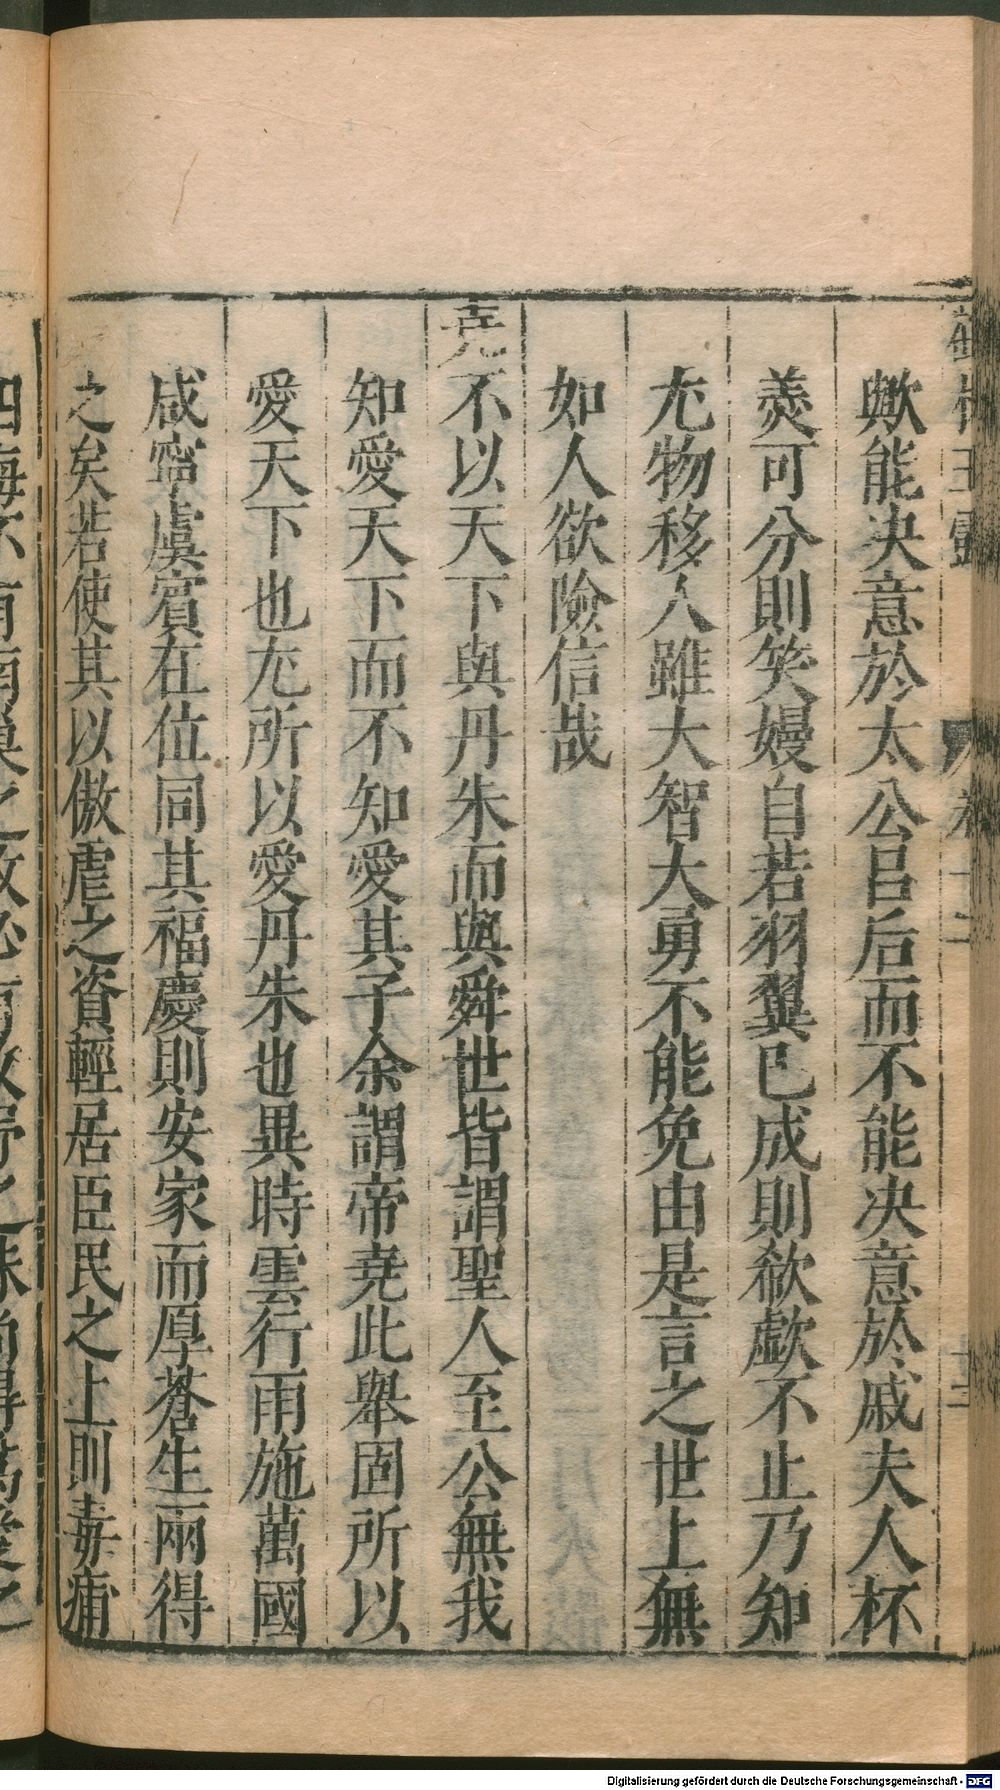 歟能決意於太公呂后而不能決意於戚夫人杯
羮可分則笑嫚自若羽翼已成則欷歔不止乃知
尤物移人雖大智大勇不能免由是言之世上無
如人欲險信哉
堯不以天下與丹朱而與舜世皆謂聖人至公無我
知愛天下而不知愛其子余謂帝堯此舉固所以
愛天下也尤所以愛丹朱也異時雲行雨施萬國
咸寧虞賓在位同其福慶則安家而厚蒼生兩得
之矣若使其以傲虐之資輕居臣民之上則毒痡
Digitalisierung gefördert durch die Deutsche Forschungsgemeinschaft - DFG